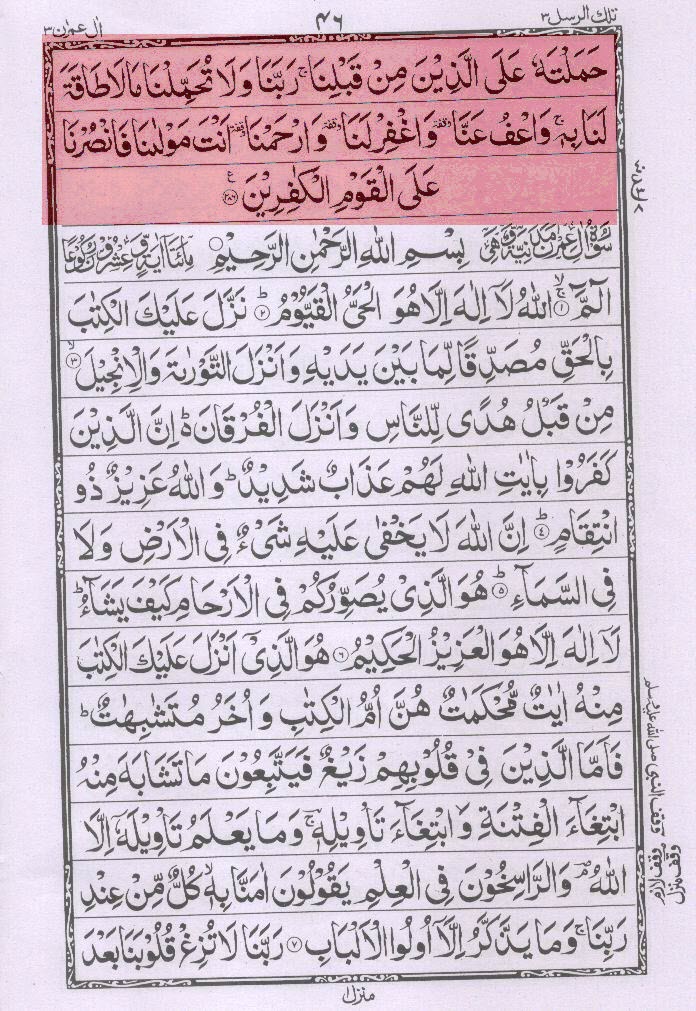 تلك الرسل ٣
٤٦
اٰل عمرٰن ٣
حَمَلْتَهٗ عَلَى الَّذِيْنَ مِنْ قَبْلِنَا ۚ رَبَّنَا وَلَا تُحَمِّلْنَا مَا لَا طَاقَةَ
لَنَا بِهٖ ۚ وَاعْفُ عَنَّا وقفة وَاغْفِرْ لَنَا وقفة وَارْحَمْنَا وقفة اَنْتَ مَوْلٰىنَا فَانْصُرْنَا
عَلَى الْقَوْمِ الْكٰفِرِيْنَ ع ٢٨٦
سُوْرَةُ اٰلِ عِمْرٰنَ مَدَنِيَّةٌ وَّهِيَ بِسْمِ اللهِ الرَّحْمٰنِ الرَّحِيْمِ مِائَتَا اٰيَةٍ وَّعِشْرُوْنَ رُكُوْعًا
الٓمّٓ ۙ ج ١ اللهُ لَاۤ اِلٰهَ اِلَّا هُوَ الْحَيُّ الْقَيُّوْمُ ؕ ٢ نَزَّلَ عَلَيْكَ الْكِتٰبَ
بِالْحَقِّ مُصَدِّقًا لِّمَا بَيْنَ يَدَيْهِ وَاَنْزَلَ التَّوْرٰىةَ وَالْاِنْجِيْلَ ۙ ٣
مِنْ قَبْلُ هُدًى لِّلنَّاسِ وَاَنْزَلَ الْفُرْقَانَ ؕ اِنَّ الَّذِيْنَ
كَفَرُوْا بِاٰيٰتِ اللهِ لَهُمْ عَذَابٌ شَدِيْدٌ ؕ وَاللهُ عَزِيْزٌ ذُو
انْتِقَامٍ ؕ ٤ اِنَّ اللهَ لَا يَخْفٰى عَلَيْهِ شَيْءٌ فِي الْاَرْضِ وَلَا
فِي السَّمَآءِ ؕ ٥ هُوَ الَّذِيْ يُصَوِّرُكُمْ فِي الْاَرْحَامِ كَيْفَ يَشَآءُ ؕ
لَاۤ اِلٰهَ اِلَّا هُوَ الْعَزِيْزُ الْحَكِيْمُ ٦ هُوَ الَّذِيْۤ اَنْزَلَ عَلَيْكَ الْكِتٰبَ
مِنْهُ اٰيٰتٌ مُّحْكَمٰتٌ هُنَّ اُمُّ الْكِتٰبِ وَاُخَرُ مُتَشٰبِهٰتٌ ؕ
فَاَمَّا الَّذِيْنَ فِيْ قُلُوْبِهِمْ زَيْغٌ فَيَتَّبِعُوْنَ مَا تَشَابَهَ مِنْهُ
ابْتِغَآءَ الْفِتْنَةِ وَابْتِغَآءَ تَاْوِيْلِهٖ ۚ وَمَا يَعْلَمُ تَاْوِيْلَهٗۤ اِلَّا
اللهُ ۘ وَالرَّاسِخُوْنَ فِي الْعِلْمِ يَقُوْلُوْنَ اٰمَنَّا بِهٖ ۙ كُلٌّ مِّنْ عِنْدِ
رَبِّنَا ۚ وَمَا يَذَّكَّرُ اِلَّاۤ اُولُوا الْاَلْبَابِ ٧ رَبَّنَا لَا تُزِغْ قُلُوْبَنَا بَعْدَ
وقف النبي صلى الله عليه وسلم
وقف لازم
وقف منزل
منزل ١